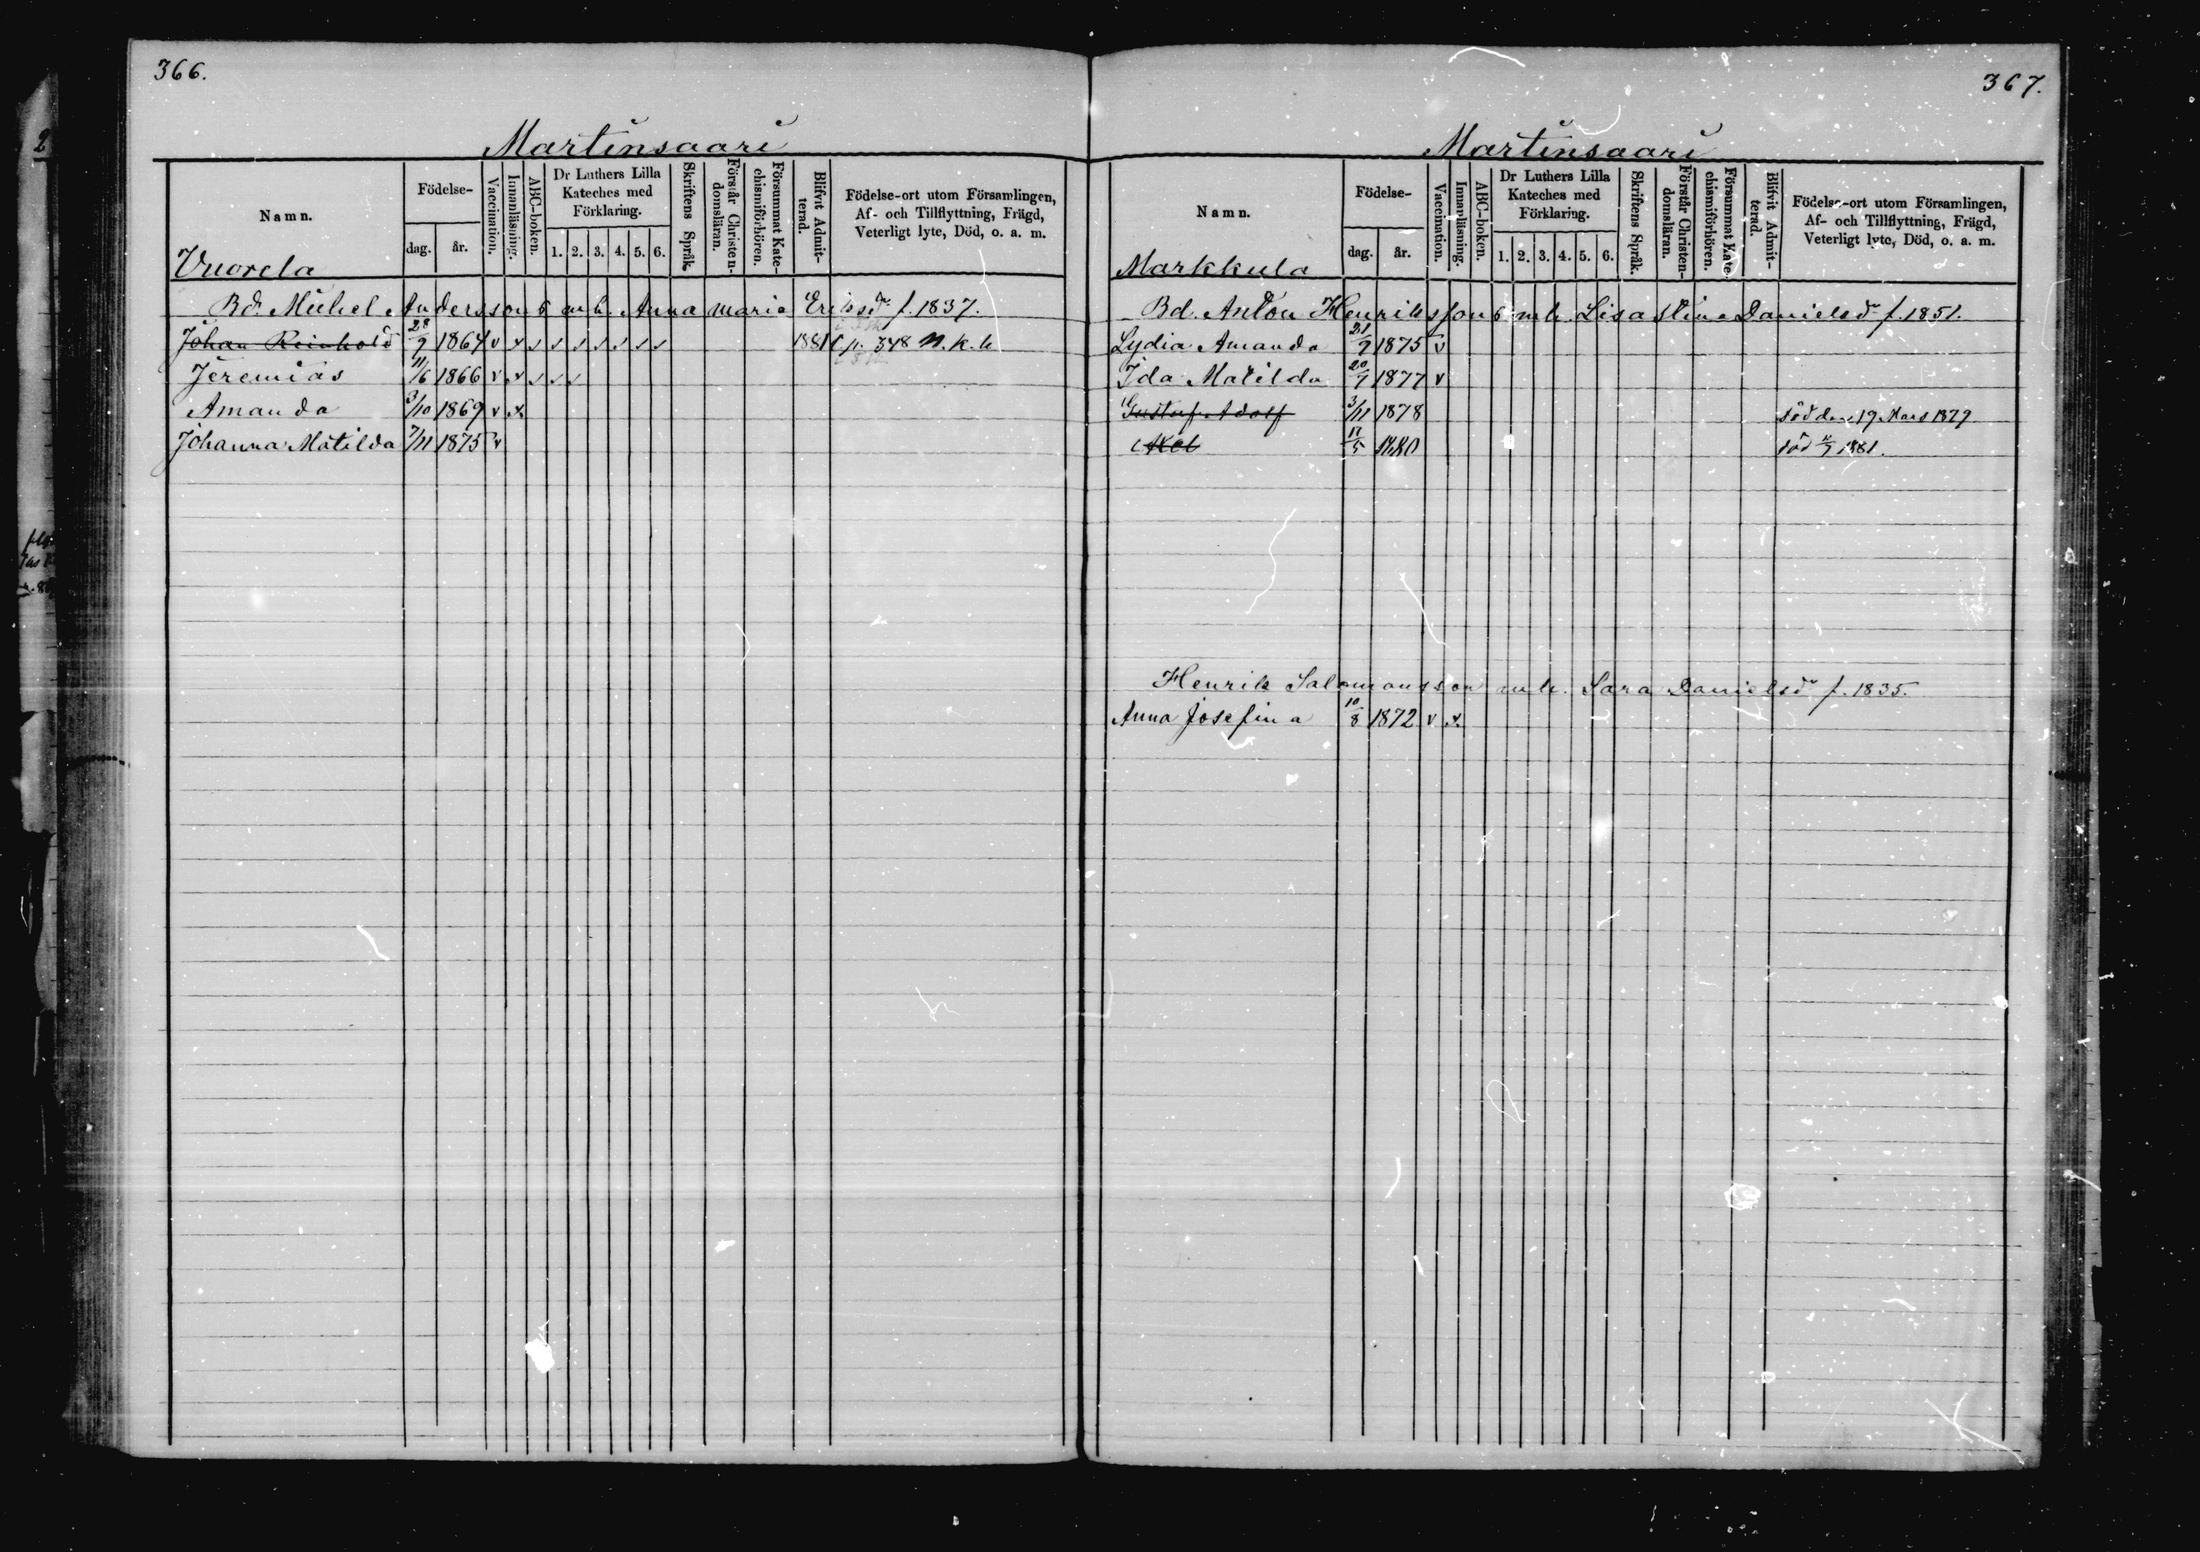 366.
Martinsaari
Namn.
Födelse-
dag.
år.
Vaccination.
Innanläsning.
ABC-boken.
Dr Luthers Lilla
Kateches med
Förklaring.
1. 2. 3. 4. 5. 6.
Skriftens Språk.
Förstår Christen-
domsläran.
Försummat Kate-
chismiförhören.
Blifvit Admit-
terad.
Födelse-ort utom Församlingen,
Af- och Tillflyttning, Frägd,
Veterligt lyte, Död, o. a. m.
Vuorela
Bd. Michel Andersson o m h. Anna Maria Eriksdr f. 1837.
Johan Reinhold 28/9 1864 v x s s s s s s s 1881 p. 348 N. k. b
Jeremias 11/6 1866 v x s s s
Amanda 3/10 1869 v x
Johanna Matilda 7/11 1875 v
367.
Martinsaari
Namn.
Födelse-
dag.
år.
Vaccination.
Innanläsning.
ABC-boken.
Dr Luthers Lilla
Kateches med
Förklaring.
1. 2. 3. 4. 5. 6.
Skriftens Språk.
Förstår Christen-
domsläran.
Försummat Kate-
chismiförhören.
Blifvit Admit-
terad.
Födelse-ort utom Församlingen,
Af- och Tillflyttning, Frägd,
Veterligt lyte, Död, o. a. m.
Markkula
Bd. Anton Henriksson o m h. Lisa Stina Danielsdr f. 1851.
Lydia Amanda 21/9 1875 v
Ida Matilda 20/7 1877 v
Gustaf Adolf 3/11 1878 död den 19 Mars 1879
Axel 17/5 1880 död 1881.
Henrik Salomonsson m h. Sara Danielsdr f. 1835.
Anna Josefina 10/8 1872 v x